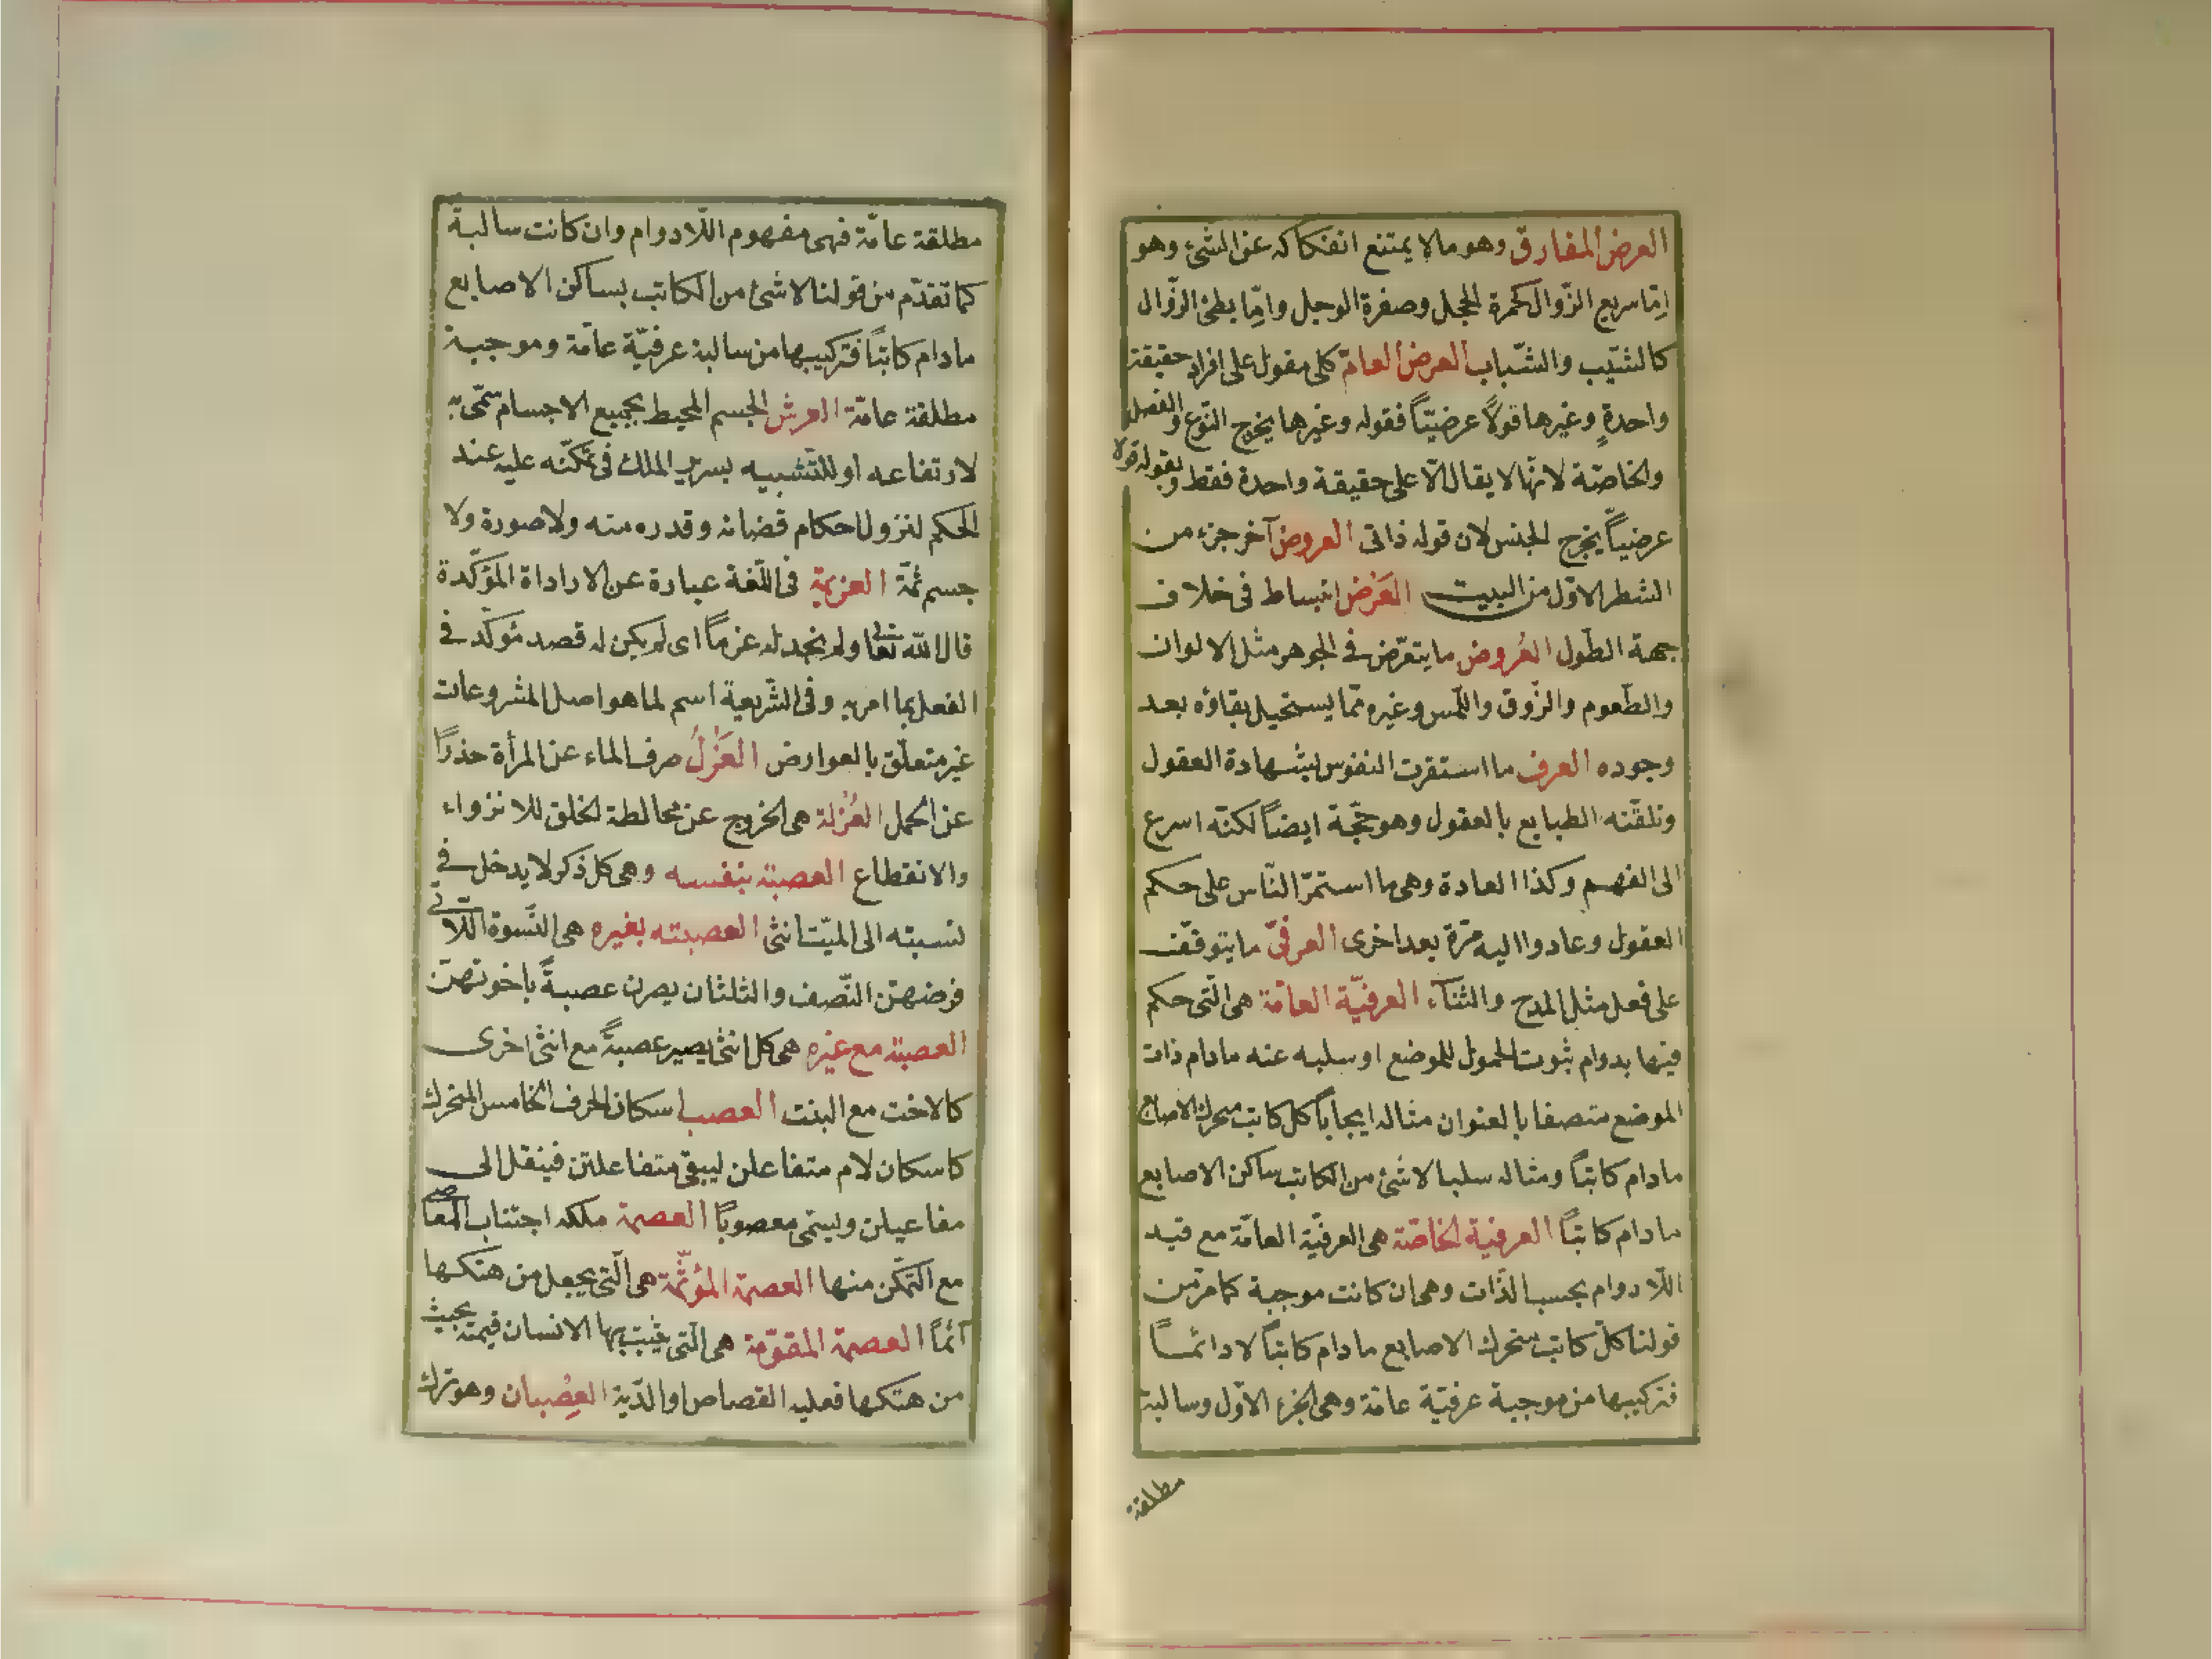 العرض المفارق وهو مالا يمتنع انفكاكه عن الشئ وهو
امّا سريع الزّوال كحمرة الخجل وصفرة الوجل وامّا بطئ الزّوال
كالشّيب والشّباب العرض العامّ كلى مقول على افراد حقيقة
واحدةٍ وغيرها قولاً عرضيّاً فقوله وغيرها يخرج النّوع والفصل
والخاصّة لانّها لا يقال الّا على حقيقة واحدة فقط وبقوله قولا
عرضيّاً يخرج الجنس لان قوله ذاتى العروض آخر جزء من
الشطر الاوّل من البيت العَرْض انبساط فى خلاف
جهة الطّول العُروض ما يتعرّض فى الجوهر مثل الالوان
والطّعوم والزّوق واللّمس وغيره ممّا يستحيل بقاؤه بعد
وجوده العرف ما استقرت النفوس بشهادة العقول
وتلقّته الطبايع بالعقول وهو حجّة ايضاً لكنّه اسرع
الى الفهم وكذا العادة وهى ما استمرّ النّاس على حكم
العقول وعادوا اليه مرّة بعد اخرى العرفىّ ما يتوقّف
على فعل مثل المدح والثنآء العرفيّة العامّة هى الّتى حكم
فيها بدوام ثبوت المحمول للموضع او سلبه عنه مادام ذات
الموضع متصفا بالعنوان مثاله ايجاباً كل كاتب متحرك الاصابع
مادام كاتباً ومثاله سلبا لاشئ من الكاتب ساكن الاصابع
مادام كاتباً العرفية الخاصّة هى العرفيّة العامّة مع قيد
اللّا دوام بحسب الذّات وهى ان كانت موجبة كما مرّ من
قولنا كلّ كاتب متحرك الاصابع مادام كاتباً لا دائمـاً
فتركيبها من موجبة عرفيّة عامّة وهى الجزء الاوّل وسالبة
مطلقة
مطلقة عامّة فهى مفهوم اللّا دوام وان كانت سالبة
كما تقدّم من قولنا لاشئ من الكاتب بساكن الاصابع
مادام كاتباً فتركيبها من سالبة عرفيّة عامّة وموجبة
مطلقة عامّة العرش الجسم المحيط بجميع الاجسام سمّى به
لارتفاعه او للتّشبيه بسرير الملك فى تمكّنه عليه عند
الحكم لنزول احكام قضائه وقدره منه ولا صورة ولا
جسم ثمّة العزيمة فى اللّغة عبارة عن الاراداة المؤكّدة
قال الله تعالى ولم نجد له عزماً اى لم يكن له قصد مؤكّد فى
الفعل بما امر به وفى الشّريعة اسم لما هو اصل المشروعات
غير متعلّق بالعوارض العَزْلُ صرف الماء عن المرأة حذراً
عن الحمل العُزْلة هى الخروج عن مخالطة الخلق للانزواء
والانقطاع العصبة بنفسه وهى كل ذكر لا يدخل فى
لنسبته الى الميّت انثى العصبته بغيره هى النّسوة اللّاتى
فرضهنّ النّصف والثلثان يصرن عصبةً باخوتهنّ
العصبة مع غيره هى كل انثى يصير عصبةً مع انثى اخرى
كالاخت مع البنت العصب اسكان الحرف الخامس المتحرك
كاسكان لام متفاعلن ليبقى متفاعلتن فينقل الى
مفاعيلن ويسمّى معصوباً العصمة ملكه اجتناب المعاصى
مع التّمكّن منها العصمة المؤثّمة هى الّتى يجعل من هتكها
آثماً العصمة المقوّمة هى الّتى يثبت بها الانسان قيمة بحيث
من هتكها فعليه القصاص او الدّية العِصْيان وهو ترك